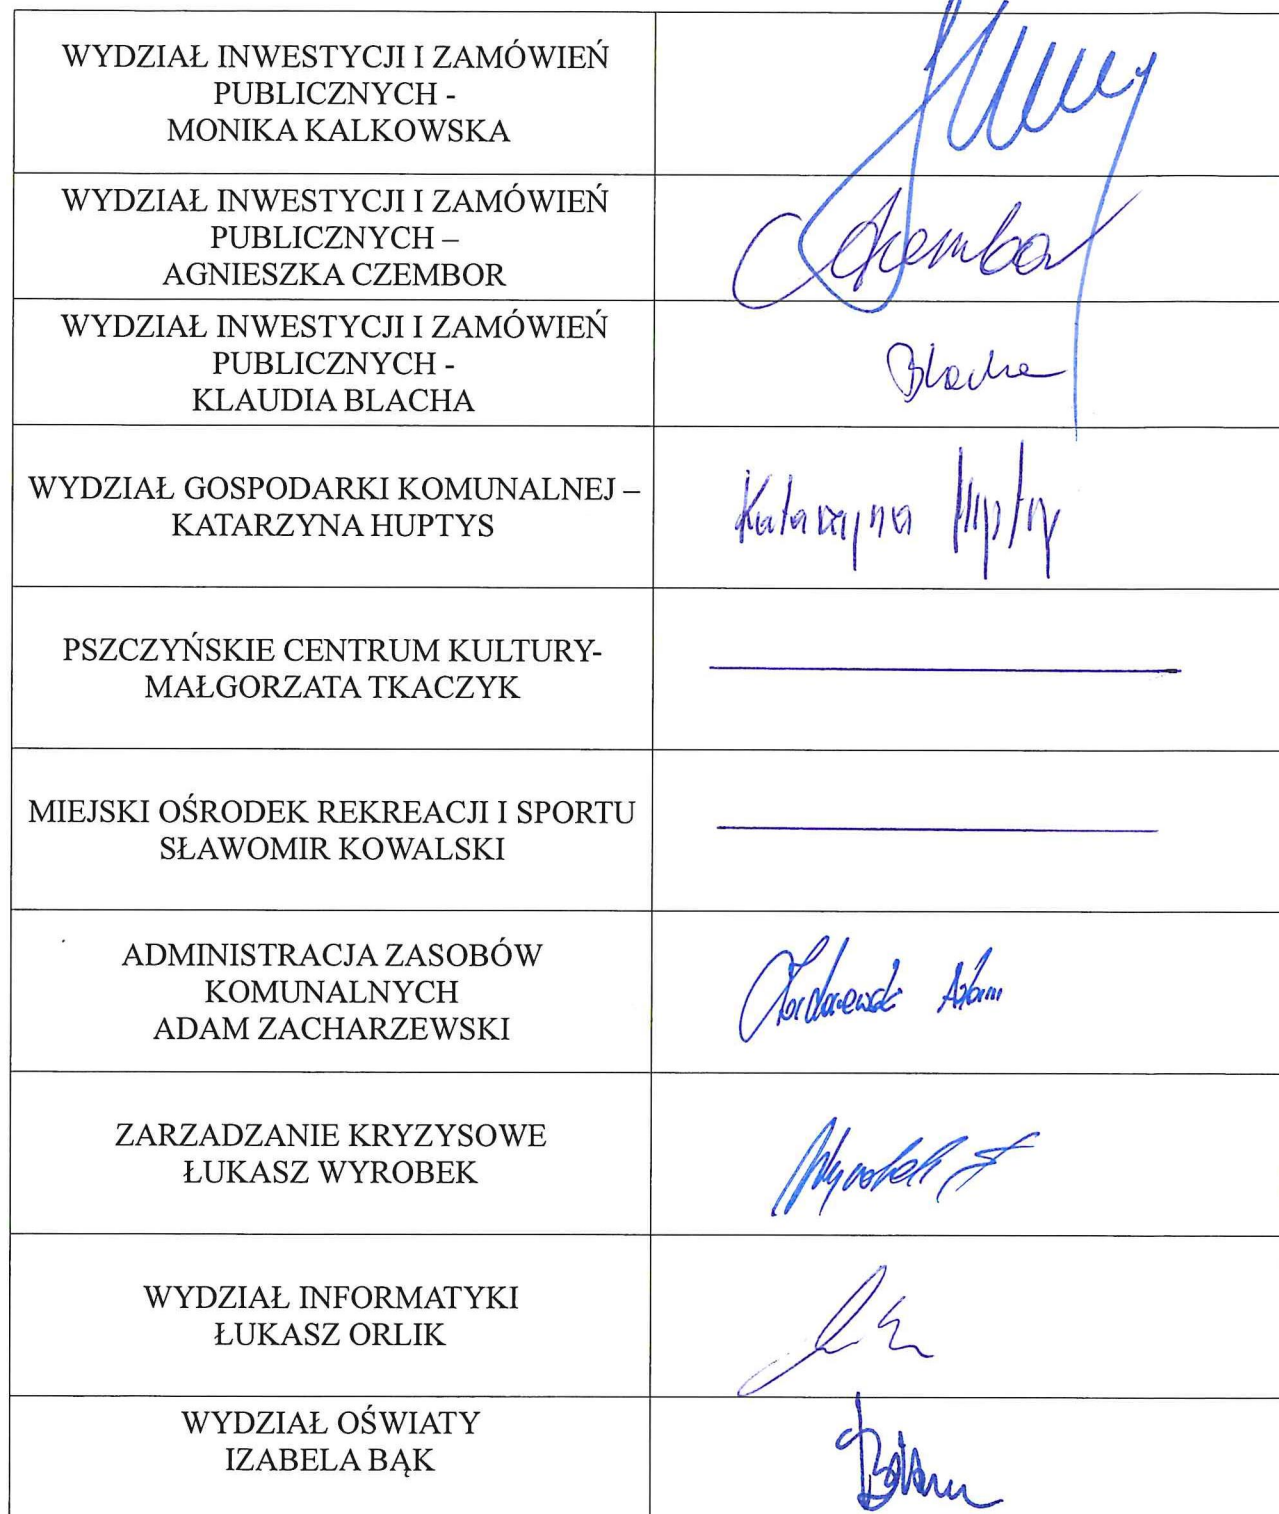 WYDZIAŁ INWESTYCJI I ZAMÓWIEŃ
PUBLICZNYCH -
MONIKA KALKOWSKA
WYDZIAŁ INWESTYCJI I ZAMÓWIEŃ
PUBLICZNYCH –
AGNIESZKA CZEMBOR
Czembor
WYDZIAŁ INWESTYCJI I ZAMÓWIEŃ
PUBLICZNYCH -
KLAUDIA BLACHA
Blacha
WYDZIAŁ GOSPODARKI KOMUNALNEJ –
KATARZYNA HUPTYS
Katarzyna Huptys
PSZCZYŃSKIE CENTRUM KULTURY-
MAŁGORZATA TKACZYK
MIEJSKI OŚRODEK REKREACJI I SPORTU
SŁAWOMIR KOWALSKI
ADMINISTRACJA ZASOBÓW
KOMUNALNYCH
ADAM ZACHARZEWSKI
Zacharzewski Adam
ZARZADZANIE KRYZYSOWE
ŁUKASZ WYROBEK
Wyrobek Ł
WYDZIAŁ INFORMATYKI
ŁUKASZ ORLIK
WYDZIAŁ OŚWIATY
IZABELA BĄK